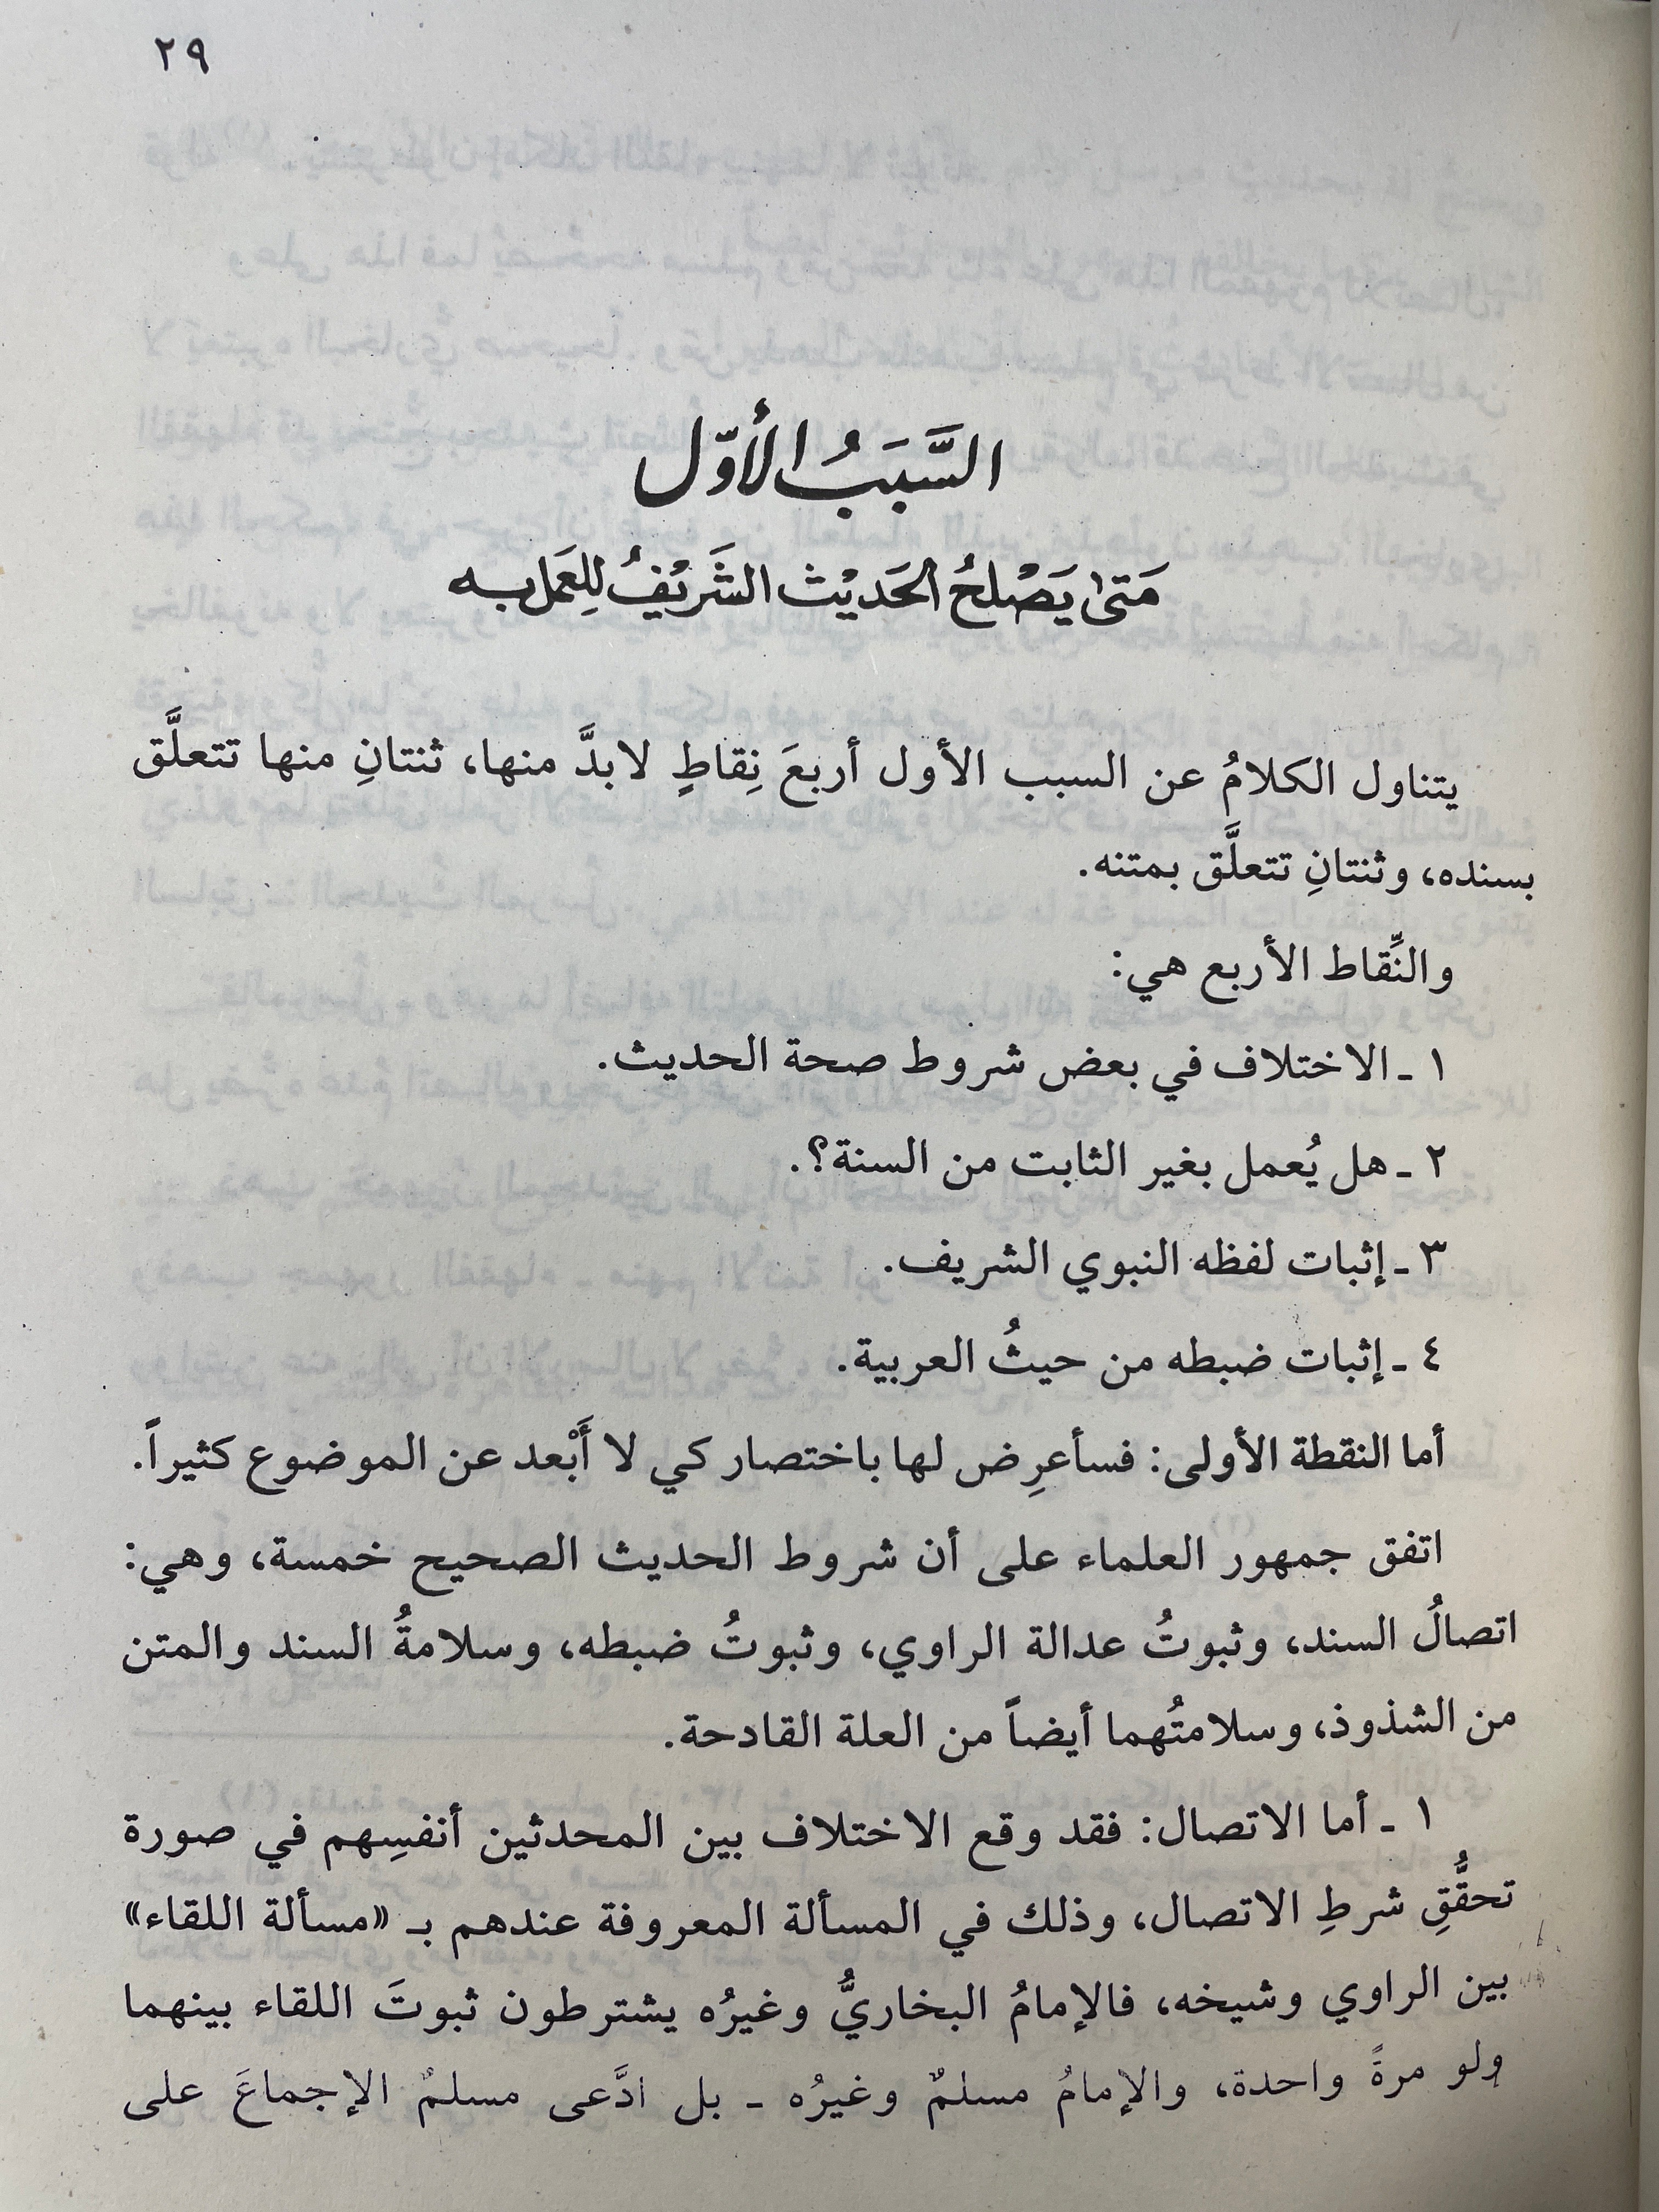 ٢٩
السَّبَبُ الأوّل
مَتىٰ يَصْلحُ الحَديْث الشَّريْفُ لِلعَمل به
يتناول الكلامُ عن السبب الأول أربعَ نِقاطٍ لابدَّ منها، ثنتانِ منها تتعلَّق
بسنده، وثنتانِ تتعلَّق بمتنه.
والنِّقاط الأربع هي:
١ ـ الاختلاف في بعض شروط صحة الحديث.
٢ ـ هل يُعمل بغير الثابت من السنة؟.
٣ ـ إثبات لفظه النبوي الشريف.
٤ ـ إثبات ضبطه من حيثُ العربية.
أما النقطة الأولى: فسأعرِض لها باختصار كي لا أَبْعد عن الموضوع كثيراً.
اتفق جمهور العلماء على أن شروط الحديث الصحيح خمسة، وهي:
اتصالُ السند، وثبوتُ عدالة الراوي، وثبوتُ ضبطه، وسلامةُ السند والمتن
من الشذوذ، وسلامتُهما أيضاً من العلة القادحة.
١ ـ أما الاتصال: فقد وقع الاختلاف بين المحدثين أنفسِهم في صورة
تحقُّقِ شرطِ الاتصال، وذلك في المسألة المعروفة عندهم بـ «مسألة اللقاء»
بين الراوي وشيخه، فالإمامُ البخاريُّ وغيرُه يشترطون ثبوتَ اللقاء بينهما
ولو مرةً واحدة، والإمامُ مسلمٌ وغيرُه ـ بل ادَّعى مسلمٌ الإجماعَ على